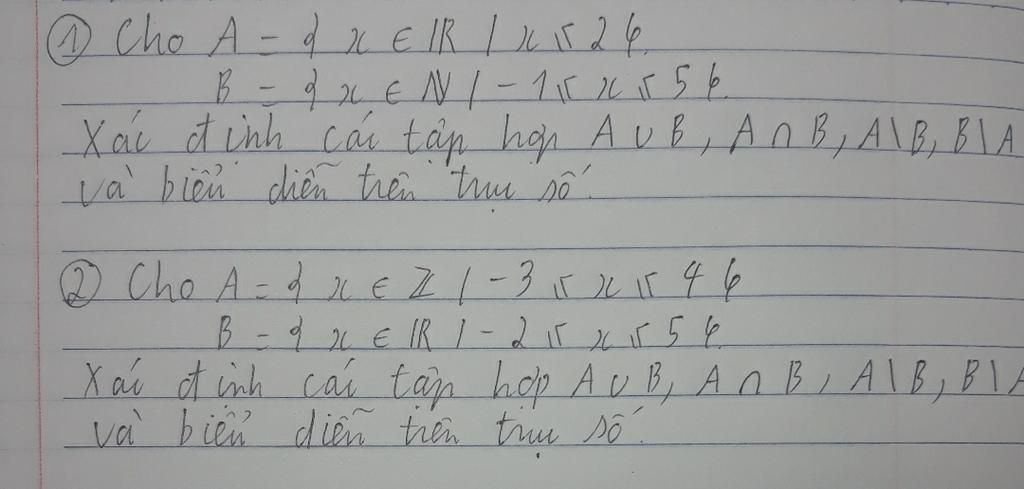 ① Cho A = { x ∈ ℝ / x ≤ 2 }.
B = { x ∈ ℕ / -1 ≤ x ≤ 5 }.
Xác định các tập hợp A ∪ B, A ∩ B, A \ B, B \ A
và biểu diễn trên trục số.
② Cho A = { x ∈ ℤ / -3 ≤ x ≤ 4 }
B = { x ∈ ℝ / -2 ≤ x ≤ 5 }.
Xác định các tập hợp A ∪ B, A ∩ B, A \ B, B \ A
và biểu diễn trên trục số.